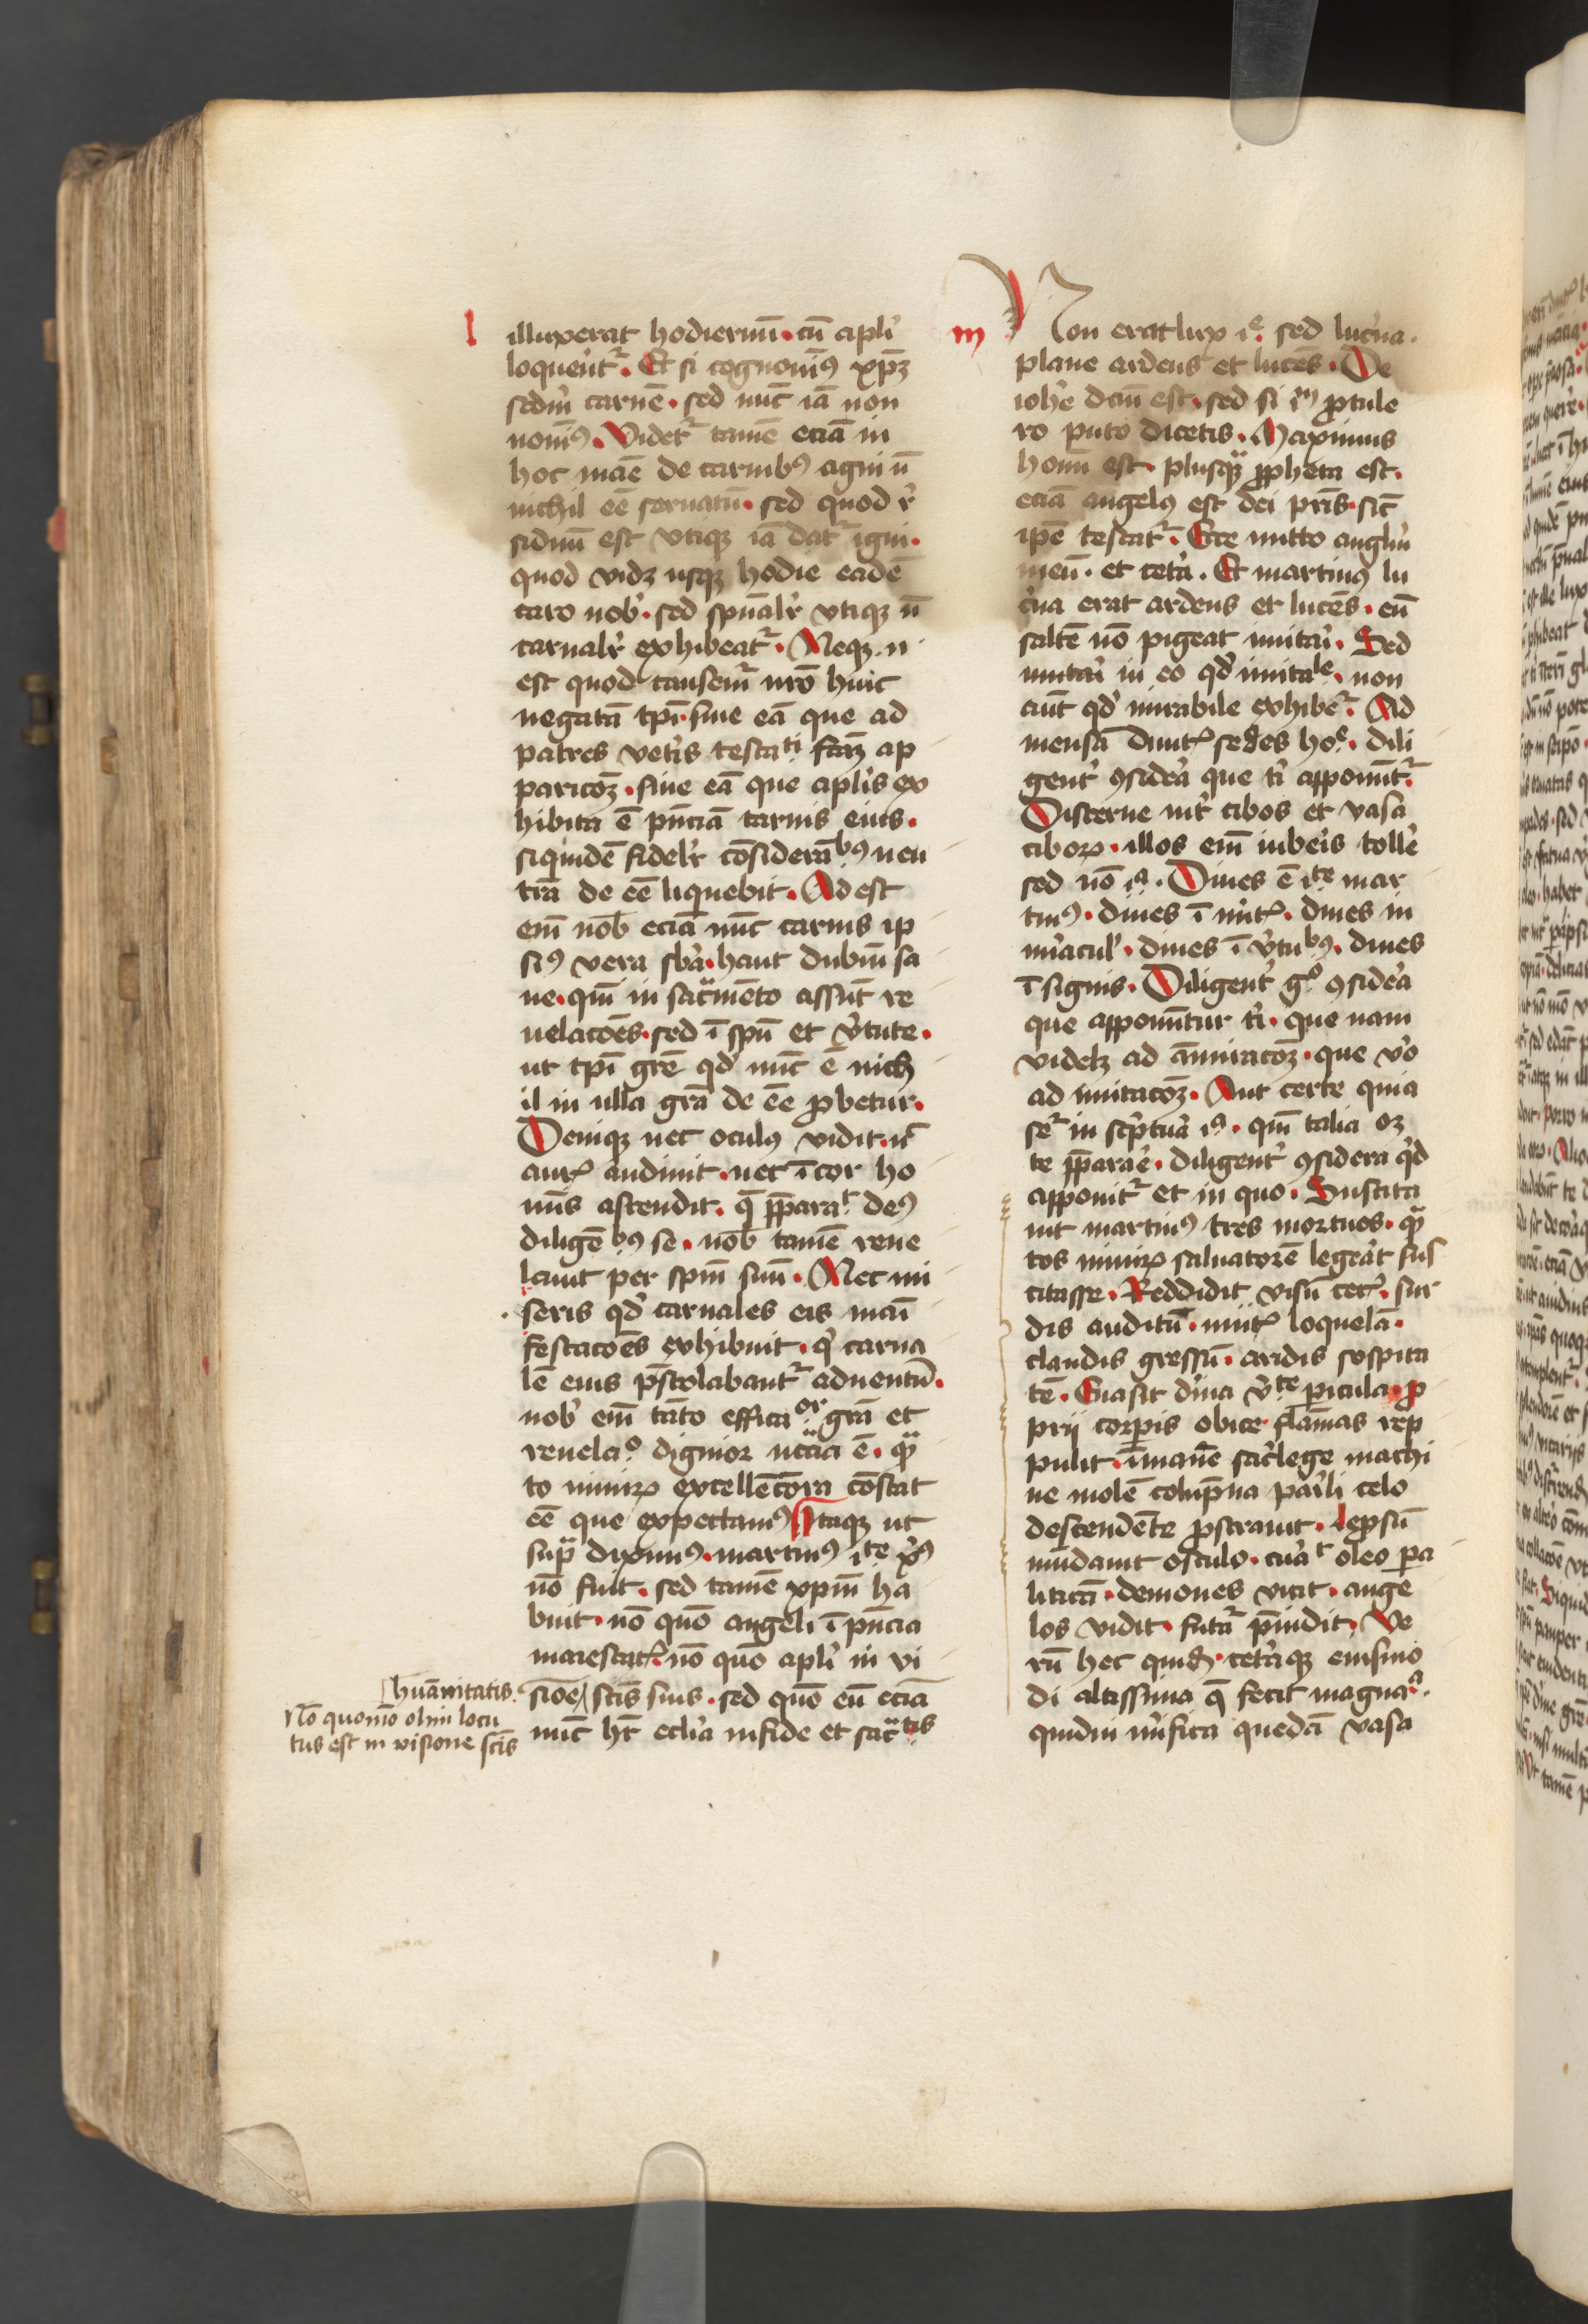 l
illuxerat hodiernū · cū apli̓
loquer̄ꝉ · Et si cognouim᷒ xp̄ꝫ
scdm̄ carnē · sed nūc iā non
nouim᷒ · Videt᷑ tamē eciā in
hoc mane de carnib᷒ agni ū
nichil eē seruatū · sed quod r̓
siduū est vtiqꝫ iā dat᷑ igni ·
quod vidꝫ usqꝫ hodie eadē
caro nob̓ · sed spūalr̓ vtiqꝫ ū
carnalr̓ exhibeat᷑ · Neqꝫ n̄
est quod causem᷑ nr̄o huic
negatā tpi̓ · siue eā que ad
patres vet̓is testaᵗⁱ fc̄aꝫ ap
paricōꝫ · siue eā que apl̓is ex
hibita ē pn̄ciā carnis eius ·
siquidē fidelr̓ cōsiderāb᷒ neu
trā de eē liquebit · Ad est
em̄ nob̄ eciā nūc carnis ip
si᷒ vera sb̄a · haut dubiū sa
ne · qm̄ in sac̄mēto assūt re
uelacōes · sed ī spū et v̓tute ·
ut tpi̓ grē qd̓ nūc ē nich
il in ulla grā de eē ꝓbetur ·
Deniqꝫ nec oculꝰ vidit · nc̄
aur̓ audiuit · nec ī cor ho
mīs ascendit · q̄ p̄paraᵗ de᷒
diligēb᷒ se · nob̄ tamē reue
lauit per spm̄ suū · Nec mi
seris qd̓ carnales eis mani
festacōes exhibuit · q̓ carna
lē eius p̄stolabant᷑ aduentū ·
nob̓ em̄ tāto efficaᵒʳ grā et
reuelaᵒ dignior nc̄cia ē · qᵃ̄
to nimiꝝ excellēcōra cōstat
eē que expectam᷒ Itaqꝫ ut
sup̄ dixim᷒ · martin᷒ iᵗᵉ x᷒
nō fuit · sed tamē xpm̄ ha
buit · nō quō angeli ī pn̄cia
maiestaꝉ · nō quō apli̓ in vi
siōe / scīs suis · sed quō eū eciā
nūc hꝫ eccl̓ia in fide et sac̄ᵗⁱˢ
huānitatis ·
Nō quomō olim locu
tus est in visione scīs
m
Non erat lux iᵉ sed luc̓na ·
plane ardens et luces · De
ioh̓e dcm̄ est · sed si iᵐ ꝓtule
ro puto dicetis · Maximus
hoīm est · plusqᵃ̄ ꝓpheta est ·
eciā angelꝰ est dei pr̄is · sic̄
ipē testat᷑ · Ecce mitto anglm̄
meū · et cet̓a · Et martin᷒ lu
c̓na erat ardens et lucēs · eū
saltē nō pigeat imitari̓ · Sed
imitari̓ in eo qd̓ imitaˡᵉ · non
aūt qd̓ mirabile exhibet᷑ · Ad
mensā diuiꝉ sedes hoᵉ · dili
gent̓ ꝯsid̓a que t̓ apponūt᷑
Discerne int̓ cibos et vasa
ciboꝝ · illos em̄ iuberis toll̓e
sed nō iᵃ · Diues ē iᵗᵉ mar
tin᷒ · diues ī m̓iꝉ · diues in
m̓acul̓ · diues ī v̓tub᷒ · diues
ī signis · Diligent̓ gᵒ ꝯsid̓a
que apponūtur t̓ · que nam
videlꝫ ad āmiracōꝫ · que v̓o
ad imitacōꝫ · Aut certe quia
sc᷑ in sc̓ptura iᵃ · qm̄ talia oꝫ
te p̄parar̓e · diligent̓ ꝯsidera qd̓
apponit᷑ et in quo · Suscita
uit martin᷒ tres mortuos · qᵃ̄
tos nimiꝝ saluatorē legerat sus
citasse · Reddidit visū cec̓ · sur
dis auditū · mutꝉ loquelā ·
claudis gressū · aridis sospita
tē · Euasit diuina v̓ᵗᵉ picula · ꝓ
prij corꝑis obice flāmas rep
pulit · īmanē sac̓lege machi
ne molē colūpna pari̓li celo
descendēte ꝓstrauit · lepsū
mūdauit osculo · curaᵗ oleo ꝑa
liticā · demones vicit · ange
los vidit · futura p̄uidit · Ve
rū hec quidē · cet̓aqꝫ eiusmō
di altissima q̄ fecit magnaᵃ ·
quidni m̓ifica quedā vasa